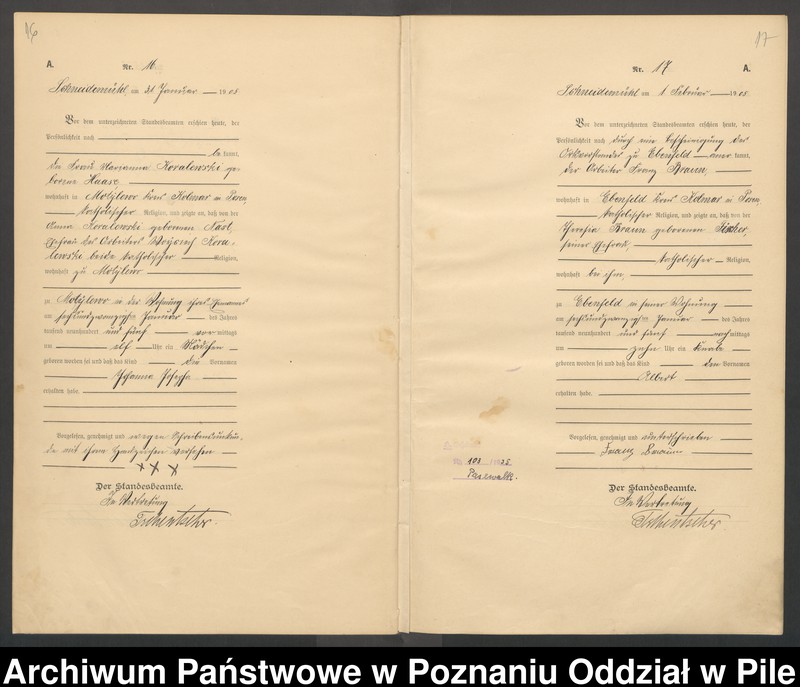 16
A.
Nr. 16
Schneidemühl am 31 Januar 1905
Vor dem unterzeichneten Standesbeamten erschien heute, der
Persönlichkeit nach
be kannt,
die Frau Marianna Kowalewski ge-
borene Haase,
wohnhaft in Motylewo Kreis Kolmar in Posen,
katholischer Religion, und zeigte an, daß von der
Anna Kowalewski geborenen Nast,
Ehefrau des Arbeiters Kowa-
lewski beide katholischer Religion,
wohnhaft zu Motylewo
zu Motylewo in der Wohnung ihres Ehemannes
am sechsundzwanzigsten Januar des Jahres
tausend neunhundert und fünf vor mittags
um elf Uhr ein Mädchen
geboren worden sei und daß das Kind die Vornamen
Johanna Josepha
erhalten habe.
Vorgelesen, genehmigt und wegen Schreibensunkun-
de mit ihrem Handzeichen versehen
XXX
Der Standesbeamte.
In Vertretung
17
Nr. 17
A.
Schneidemühl am 1 Februar 1905
Vor dem unterzeichneten Standesbeamten erschien heute, der
Persönlichkeit nach durch eine Bescheinigung des
Ortsvorstandes zu Ebenfeld aner kannt,
der Arbeiter Franz Braun,
wohnhaft in Ebenfeld Kreis Kolmar in Posen,
katholischer Religion, und zeigte an, daß von der
Theresia Braun geborenen Fischer,
seiner Ehefrau,
katholischer Religion,
wohnhaft bei ihm,
zu Ebenfeld in seiner Wohnung
am sechsundzwanzigsten Januar des Jahres
tausend neunhundert und fünf nach mittags
um zehn Uhr ein Knabe
geboren worden sei und daß das Kind den Vornamen
Albert
erhalten habe.
Vorgelesen, genehmigt und unterschrieben
Franz Braun
103
Pasewalk.
Der Standesbeamte.
In Vertretung
Archiwum Państwowe w Poznaniu Oddział w Pile